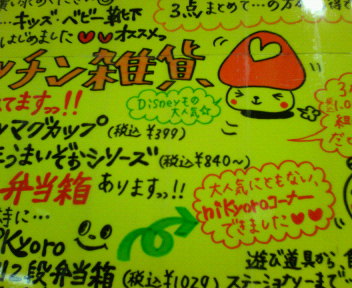 キッズ・ベビー靴下
3点まとめて…の方が
はじめました♥♥オススメっ
ッチン雑貨、
Disneyもの
大人気☆
てますっ!!
マグカップ (税込¥399)
うまいぞぉシリーズ (税込¥840〜)
弁当箱 ありますっ!!
大人気にともない、
nikyoroコーナー
できました♥♥
kyoro
2段弁当箱 (税込¥1029)
遊び道具から
ステーショナリーまで